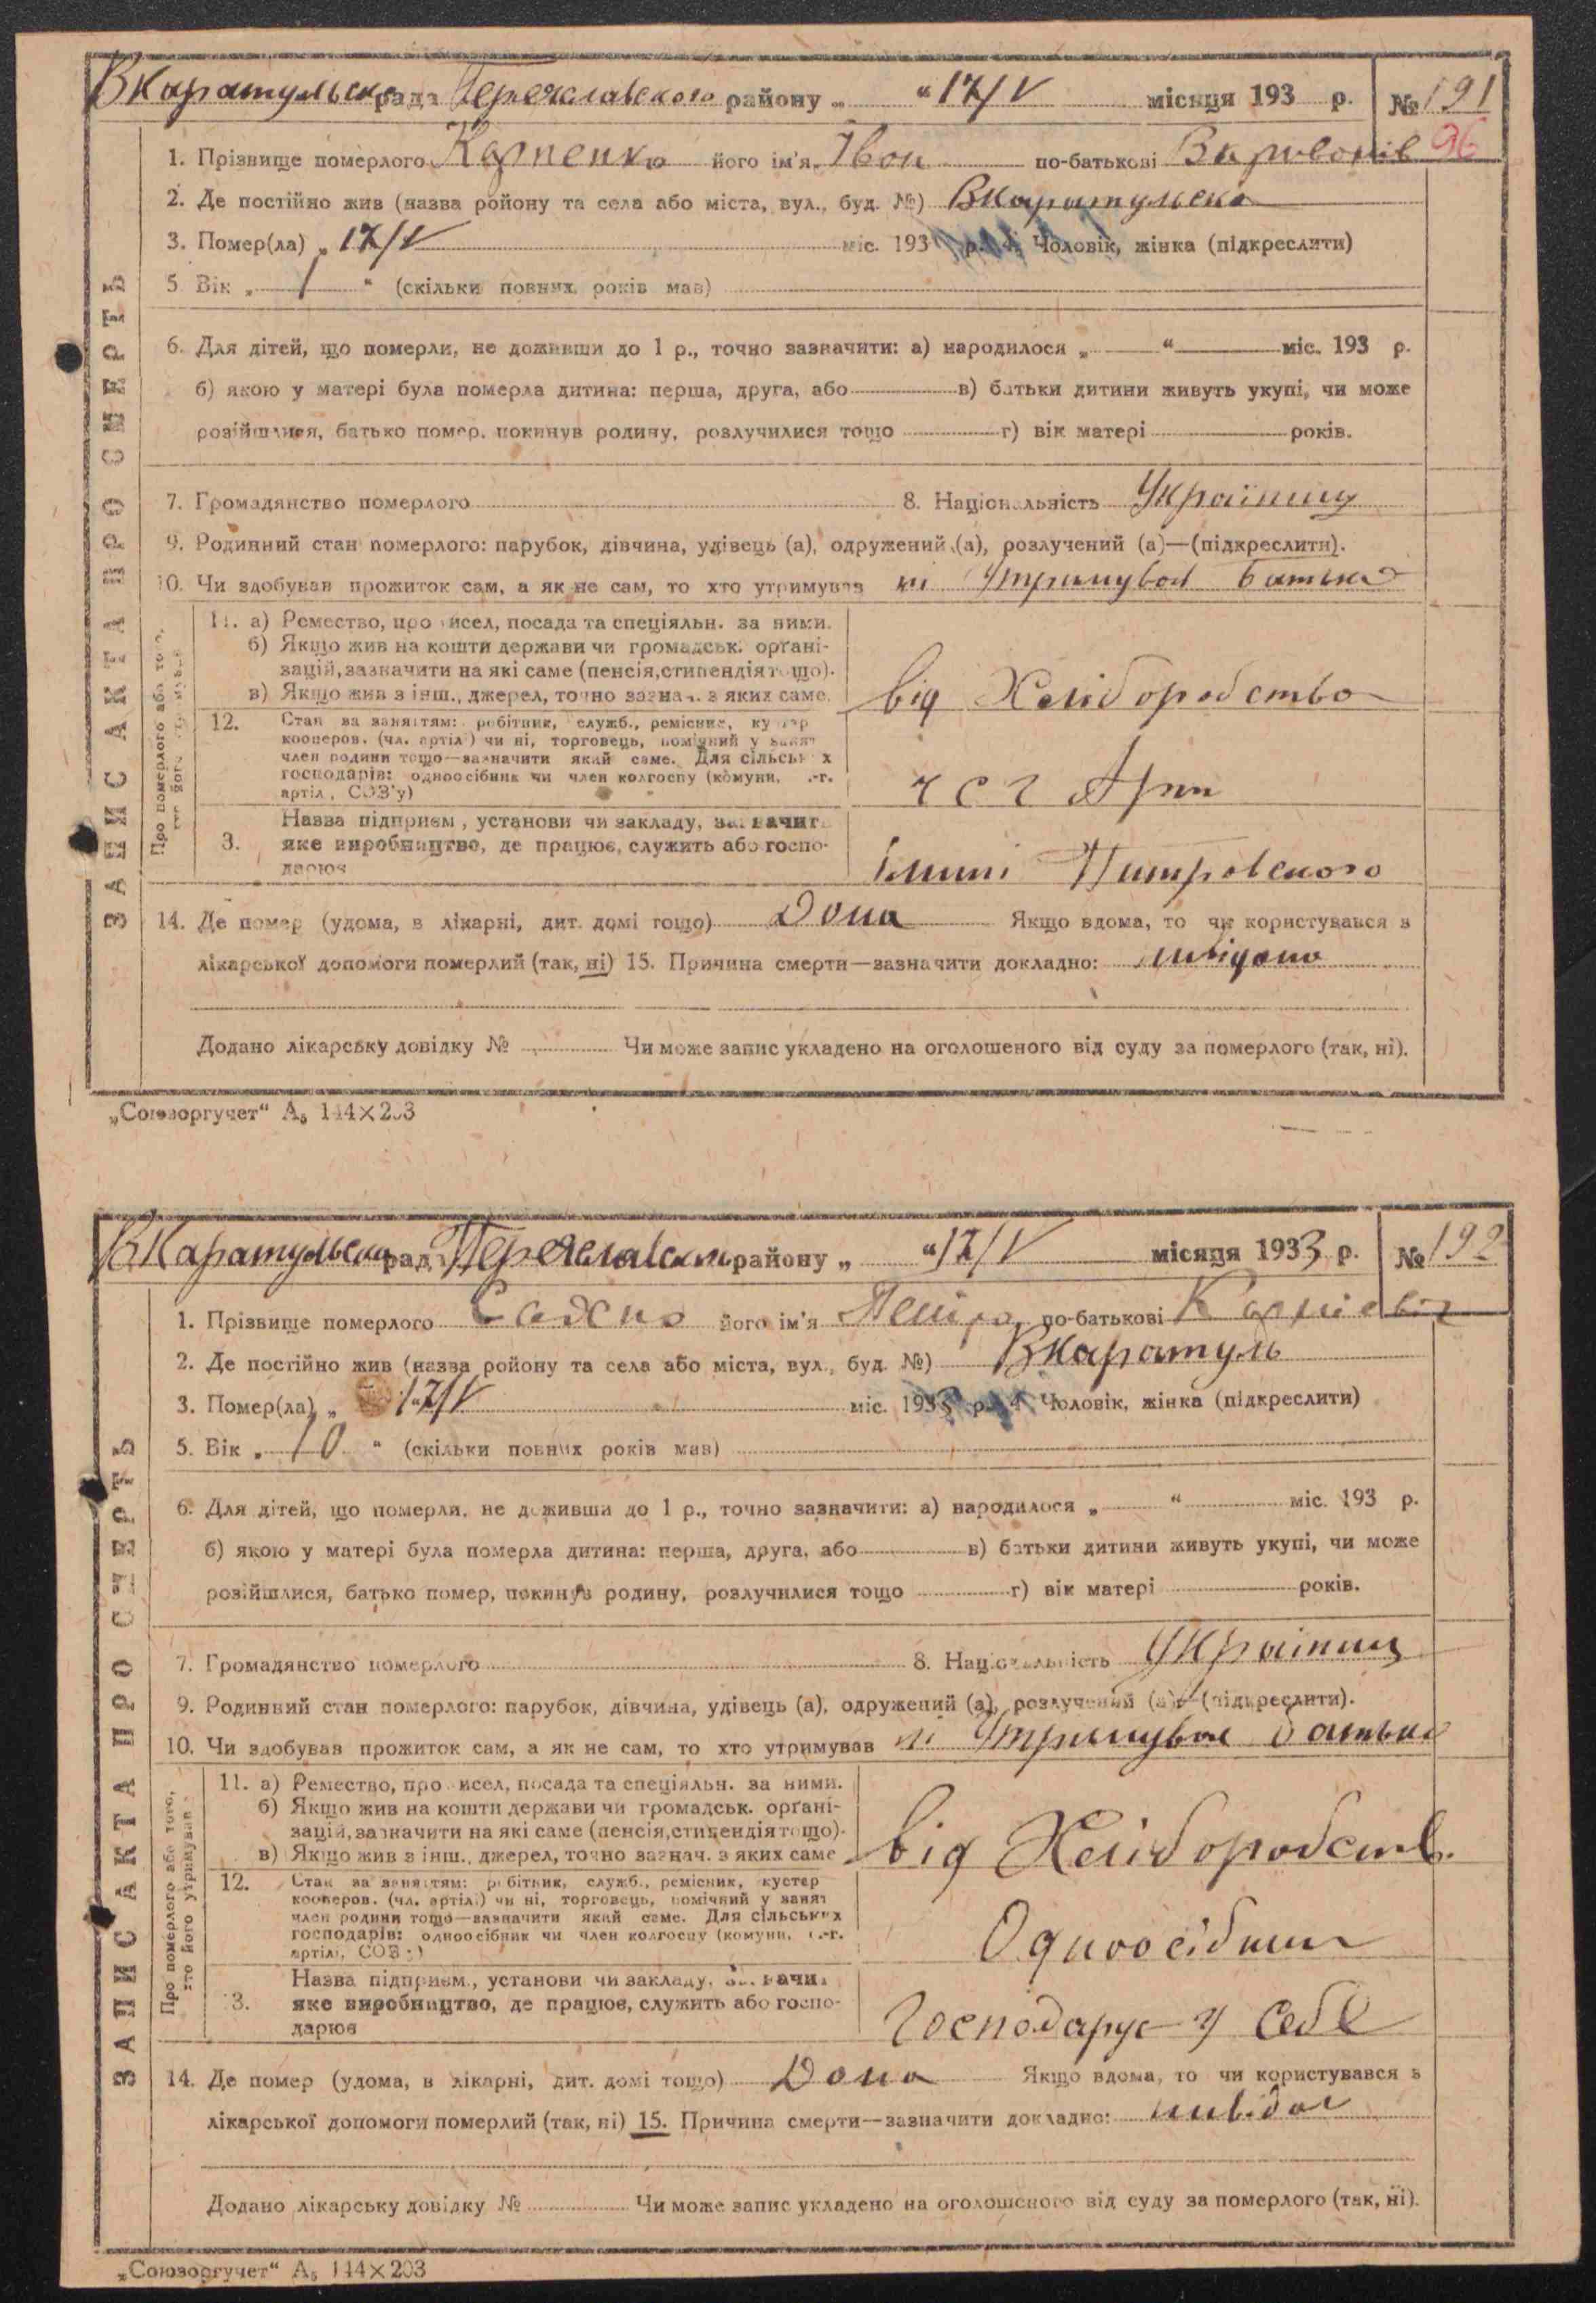 ВКаратульська рада Переяславського району „ “ 17/V місяця 193 р. № 191
96
1. Прізвище померлого Карпенко його ім'я Іван по-батькові
2. Де постійно жив (назва ройону та села або міста, вул., буд. №) ВКаратульська
3. Помер(ла) „ 17/V міс. 193 р. 4. Чоловік, жінка (підкреслити)
5. Вік „ 1 “ (скільки повних років мав)
6. Для дітей, що померли, не доживши до 1 р., точно зазначити: а) народилося „ “ міс. 193 р.
б) якою у матері була померла дитина: перша, друга, або в) батьки дитини живуть укупі, чи може
розійшлися, батько помер, покинув родину, розлучилися тощо г) вік матері років.
7. Громадянство померлого 8. Національність Українец
9. Родинний стан померлого: парубок, дівчина, удівець (а), одружений (а), розлучений (а)—(підкреслити).
10. Чи здобував прожиток сам, а як не сам, то хто утримував ні Утримував батько
Про померлого або того, хто його утримував
11. а) Ремество, про исел, посада та спеціяльн. за ними.
б) Якщо жив на кошти держави чи громадськ. орґані-
зацій, зазначити на які саме (пенсія, стипендія тощо).
в) Якщо жив з інш., джерел, точно зазнач. з яких саме.
від Хліборобство
12. Стан за заняттям: робітник, служб., ремісник, кустар
кооперов. (чл. артілі) чи ні, торговець, помічний у занят
член родини тощо—зазначити який саме. Для сільських
господарів: одноосібник чи член колгоспу (комуни, с.-г.
артіл, СОЗ'у)
ч с г Арт
3. Назва підприєм., установи чи закладу, зазначит
яке виробництво, де працює, служить або госпо-
дарює
імині Питровского
14. Де помер (удома, в лікарні, дит. домі тощо) Дома Якщо вдома, то чи користувався з
лікарської допомоги померлий (так, ні) 15. Причина смерти—зазначити докладно:
Додано лікарську довідку № Чи може запис укладено на оголошеного від суду за померлого (так, ні).
ЗАПИС АКТА ПРО СМЕРТЬ
„Союзоргучет“ А₅ 144×203
ВКаратульська рада Переяславського району „ “ 17/V місяця 1933 р. № 192
1. Прізвище померлого його ім'я Петро по-батькові
2. Де постійно жив (назва ройону та села або міста, вул., буд. №) ВКаратуль
3. Помер(ла) „ 17/V міс. 1933 р. 4. Чоловік, жінка (підкреслити)
5. Вік „ 10 “ (скільки повних років мав)
6. Для дітей, що померли, не доживши до 1 р., точно зазначити: а) народилося „ “ міс. 193 р.
б) якою у матері була померла дитина: перша, друга, або в) батьки дитини живуть укупі, чи може
розійшлися, батько помер, покинув родину, розлучилися тощо г) вік матері років.
7. Громадянство померлого 8. Національність Українец
9. Родинний стан померлого: парубок, дівчина, удівець (а), одружений (а), розлучений (а)—(підкреслити).
10. Чи здобував прожиток сам, а як не сам, то хто утримував ні Утримував батько
Про померлого або того, хто його утримував
11. а) Ремество, про исел, посада та спеціяльн. за ними.
б) Якщо жив на кошти держави чи громадськ. орґані-
зацій, зазначити на які саме (пенсія, стипендія тощо).
в) Якщо жив з інш., джерел, точно зазнач. з яких саме
від Хліборобств.
12. Стан за заняттям: робітник, служб., ремісник, кустер
кооперов. (чл. артілі) чи ні, торговець, помічний у занят
член родини тощо—зазначити який саме. Для сільських
господарів: одноосібник чи член колгоспу (комуни, с.-г.
артілі, СОЗ )
Одноосібник
3. Назва підприєм., установи чи закладу, зазначи
яке виробництво, де працює, служить або госпо-
дарює
Господарує у себе
14. Де помер (удома, в лікарні, дит. домі тощо) Дома Якщо вдома, то чи користувався з
лікарської допомоги померлий (так, ні) 15. Причина смерти—зазначити докладно:
Додано лікарську довідку № Чи може запис укладено на оголошеного від суду за померлого (так, ні).
ЗАПИС АКТА ПРО СМЕРТЬ
„Союзоргучет“ А₅ 144×203